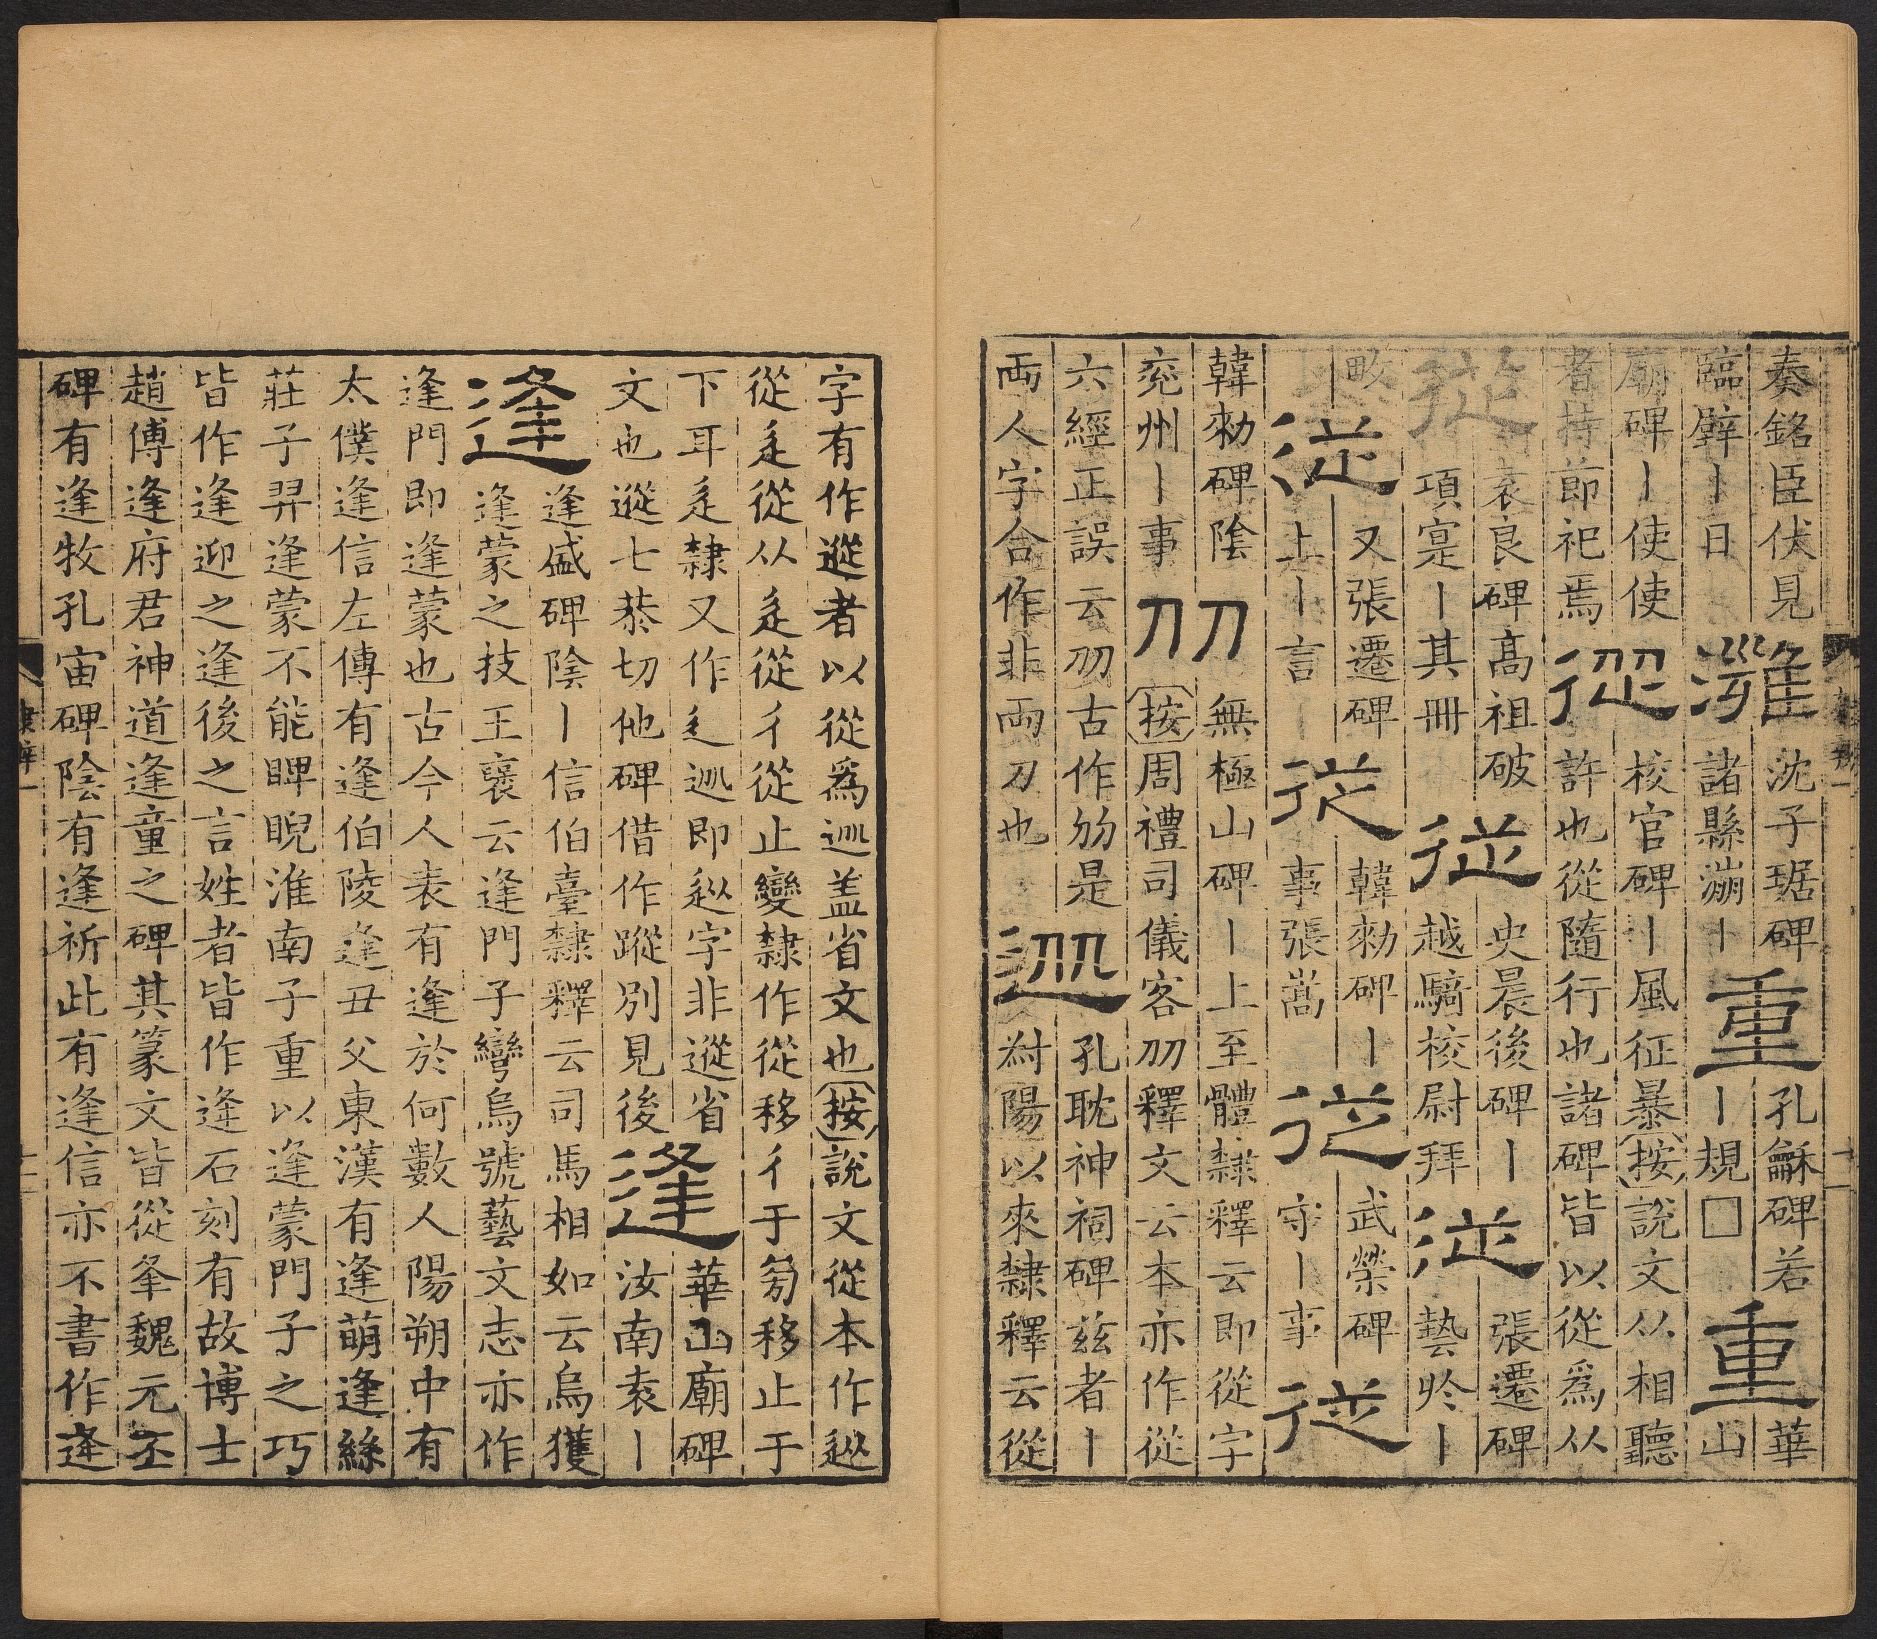 奏銘臣伏見
臨辟丨日
灉
沈子琚碑
諸縣淜丨
重
孔龢碑若
丨規□
重
華
山
廟碑丨使使
者持節祀焉
從
校官碑丨風征暴按說文从相聽
許也從隨行也諸碑皆以從爲从
從
袁良碑高祖破
項寔丨其冊
從
史晨後碑丨
越騎校尉拜
從
張遷碑
藝扵丨
畋
從
又張遷碑
上丨言丨
從
韓勑碑丨
事張嵩
從
武榮碑
守丨事
從
韓勑碑陰
兖州丨事
刀刀
無極山碑丨上至體隸釋云即從字
按周禮司儀客刅釋文云本亦作從
六經正誤云刅古作𠚣是
両人字合作非両刀也
迎
孔耽神祠碑兹者丨
尌陽以來隸釋云從
字有作遳者以從爲䢐盖省文也按說文從本作䢐
從辵從从辵從彳從止變隸作從移彳于䒑移止于
下耳辵隸又作辶䢐即䢐字非遳省
文也遳七恭切他碑借作蹤別見後
逢
華山廟碑
汝南袁丨
逢盛碑陰丨信伯臺隸釋云司馬相如云烏獲
逢
逢蒙之技王襃云逢門子彎烏號藝文志亦作
逢門即逢蒙也古今人表有逢於何數人陽朔中有
太僕逢信左傳有逢伯陵逢丑父東漢有逢萌逢絲
莊子羿逢蒙不能睥睨淮南子重以逢蒙門子之巧
皆作逢迎之逢後之言姓者皆作逄石刻有故博士
趙傅逢府君神道逢童之碑其篆文皆從夆魏元丕
碑有逢牧孔宙碑陰有逢祈此有逢信亦不書作逄